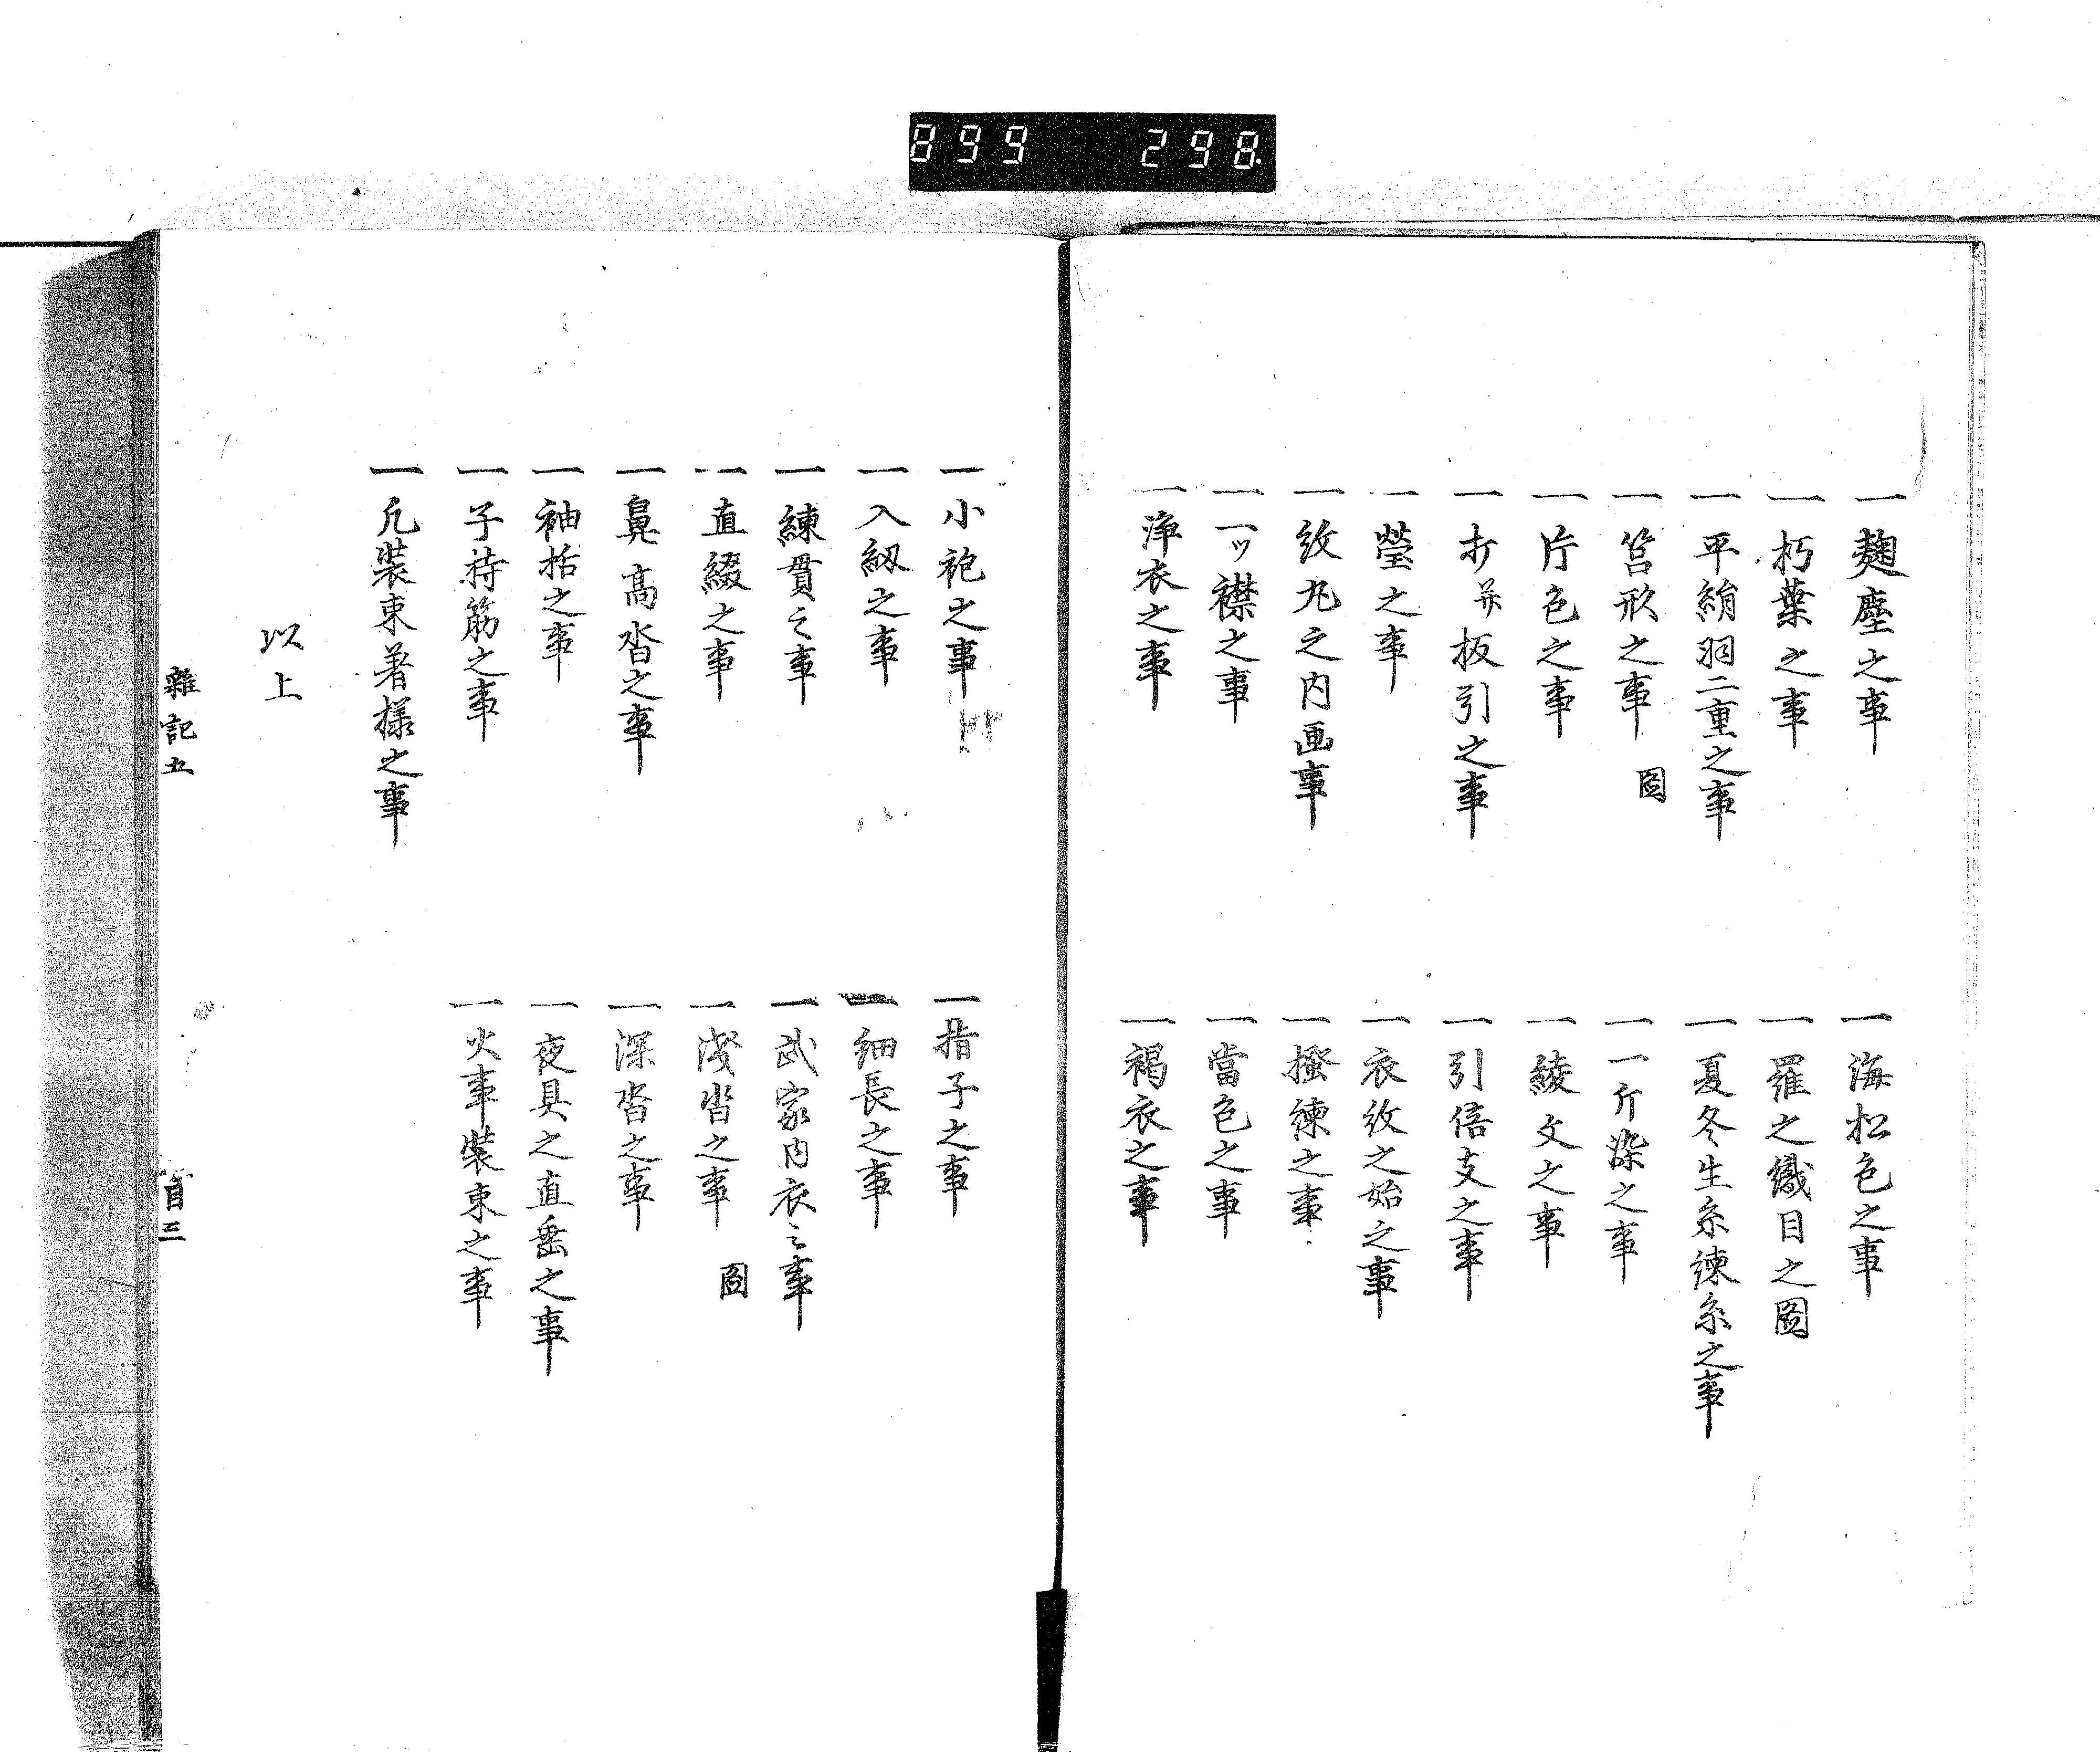 899 298
一麹塵之事
一海松色之事
一朽葉之事
一羅之織目之圖
一平絹羽二重之事
一夏冬生糸練糸之事
一筥形之事 圖
一一斤染之事
一片色之事
一綾文之事
一打并板引之事
一引倍支之事
一瑩之事
一衣紋之始之事
一紋丸之内画事
一搔練之事
一一ッ襟之事
一當色之事
一淨衣之事
一褐衣之事
一小袍之事
一指子之事
一入綱之事
一細長之事
一練貫之事
一武家内衣之事
一直綴之事
一浅沓之事 圖
一鼻高沓之事
一深沓之事
一袖括之事
一夜具之直垂之事
一子持筋之事
一火事裝束之事
一凢裝束着樣之事
以上
雜記五 目三